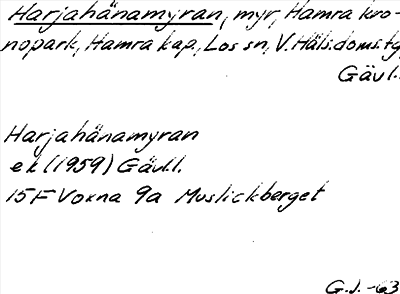 Harjahänamyran, myr, Hamra kro-
nopark, Hamra kap., Los sn, V. Häls. doms. tg,
Gävl.
Harjahänamyran
ek (1959) Gävl.l.
15F Voxna 9a Muslickberget
G.J. -63